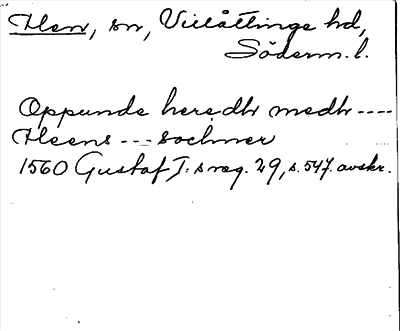 Hen, sn, Villåttinge hd,
Söderm. l.
Oppunde heredh medh ----
Heens --- sochner
1560 Gustaf I:s reg. 29, s. 547. avskr.